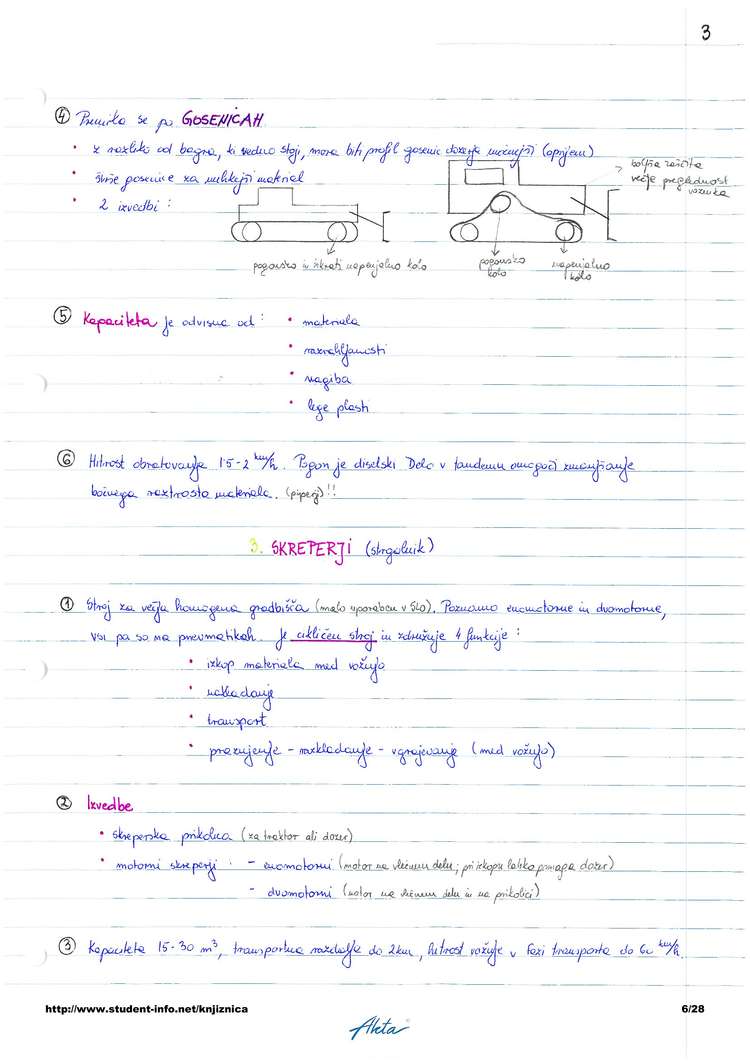 3
④ Premika se po GOSENICAH
• z razliko od bagra, ki vedno stoji, mora biti profil gosenic dozerja močnejši (oprijem)
• širše gosenice za mehkejši material
• 2 izvedbi :
boljša zaščita
večje preglednost
voznika
pogonsko in hkrati napenjalno kolo
pogonsko
kolo
napenjalno
kolo
⑤ Kapaciteta je odvisna od : • materiala
• razrahljanosti
• nagiba
• lege plasti
⑥ Hitrost obratovanja 1'5-2 km/h. Pogon je diselski Delo v tandemu omogoči zmanjšanje
bočnega raztrosa materiala. !!
3. SKREPERJI (strgalnik)
① Stroj za večja homogena gradbišča (malo uporaben v SLO). Poznamo enomotorne in dvomotorne,
vsi pa so na pnevmatikah. Je cikličen stroj in združuje 4 funkcije :
• izkop materiala med vožnjo
• nakladanje
• transport
• praznjenje - razkladanje - vgrajevanje (med vožnjo)
② Izvedbe
• skreperska prikolica (za traktor ali dozer)
• motorni skreperji : - enomotorni (motor na vlečnem delu; pri izkopu lahko pomaga dozer)
- dvomotorni (motor na vlečnem delu in na prikolici)
③ Kapaciteta 15-30 m³, transportna razdalja do 2km, hitrost vožnje v fazi transporta do 60 km/h.
http://www.student-info.net/knjiznica
6/28
Akta